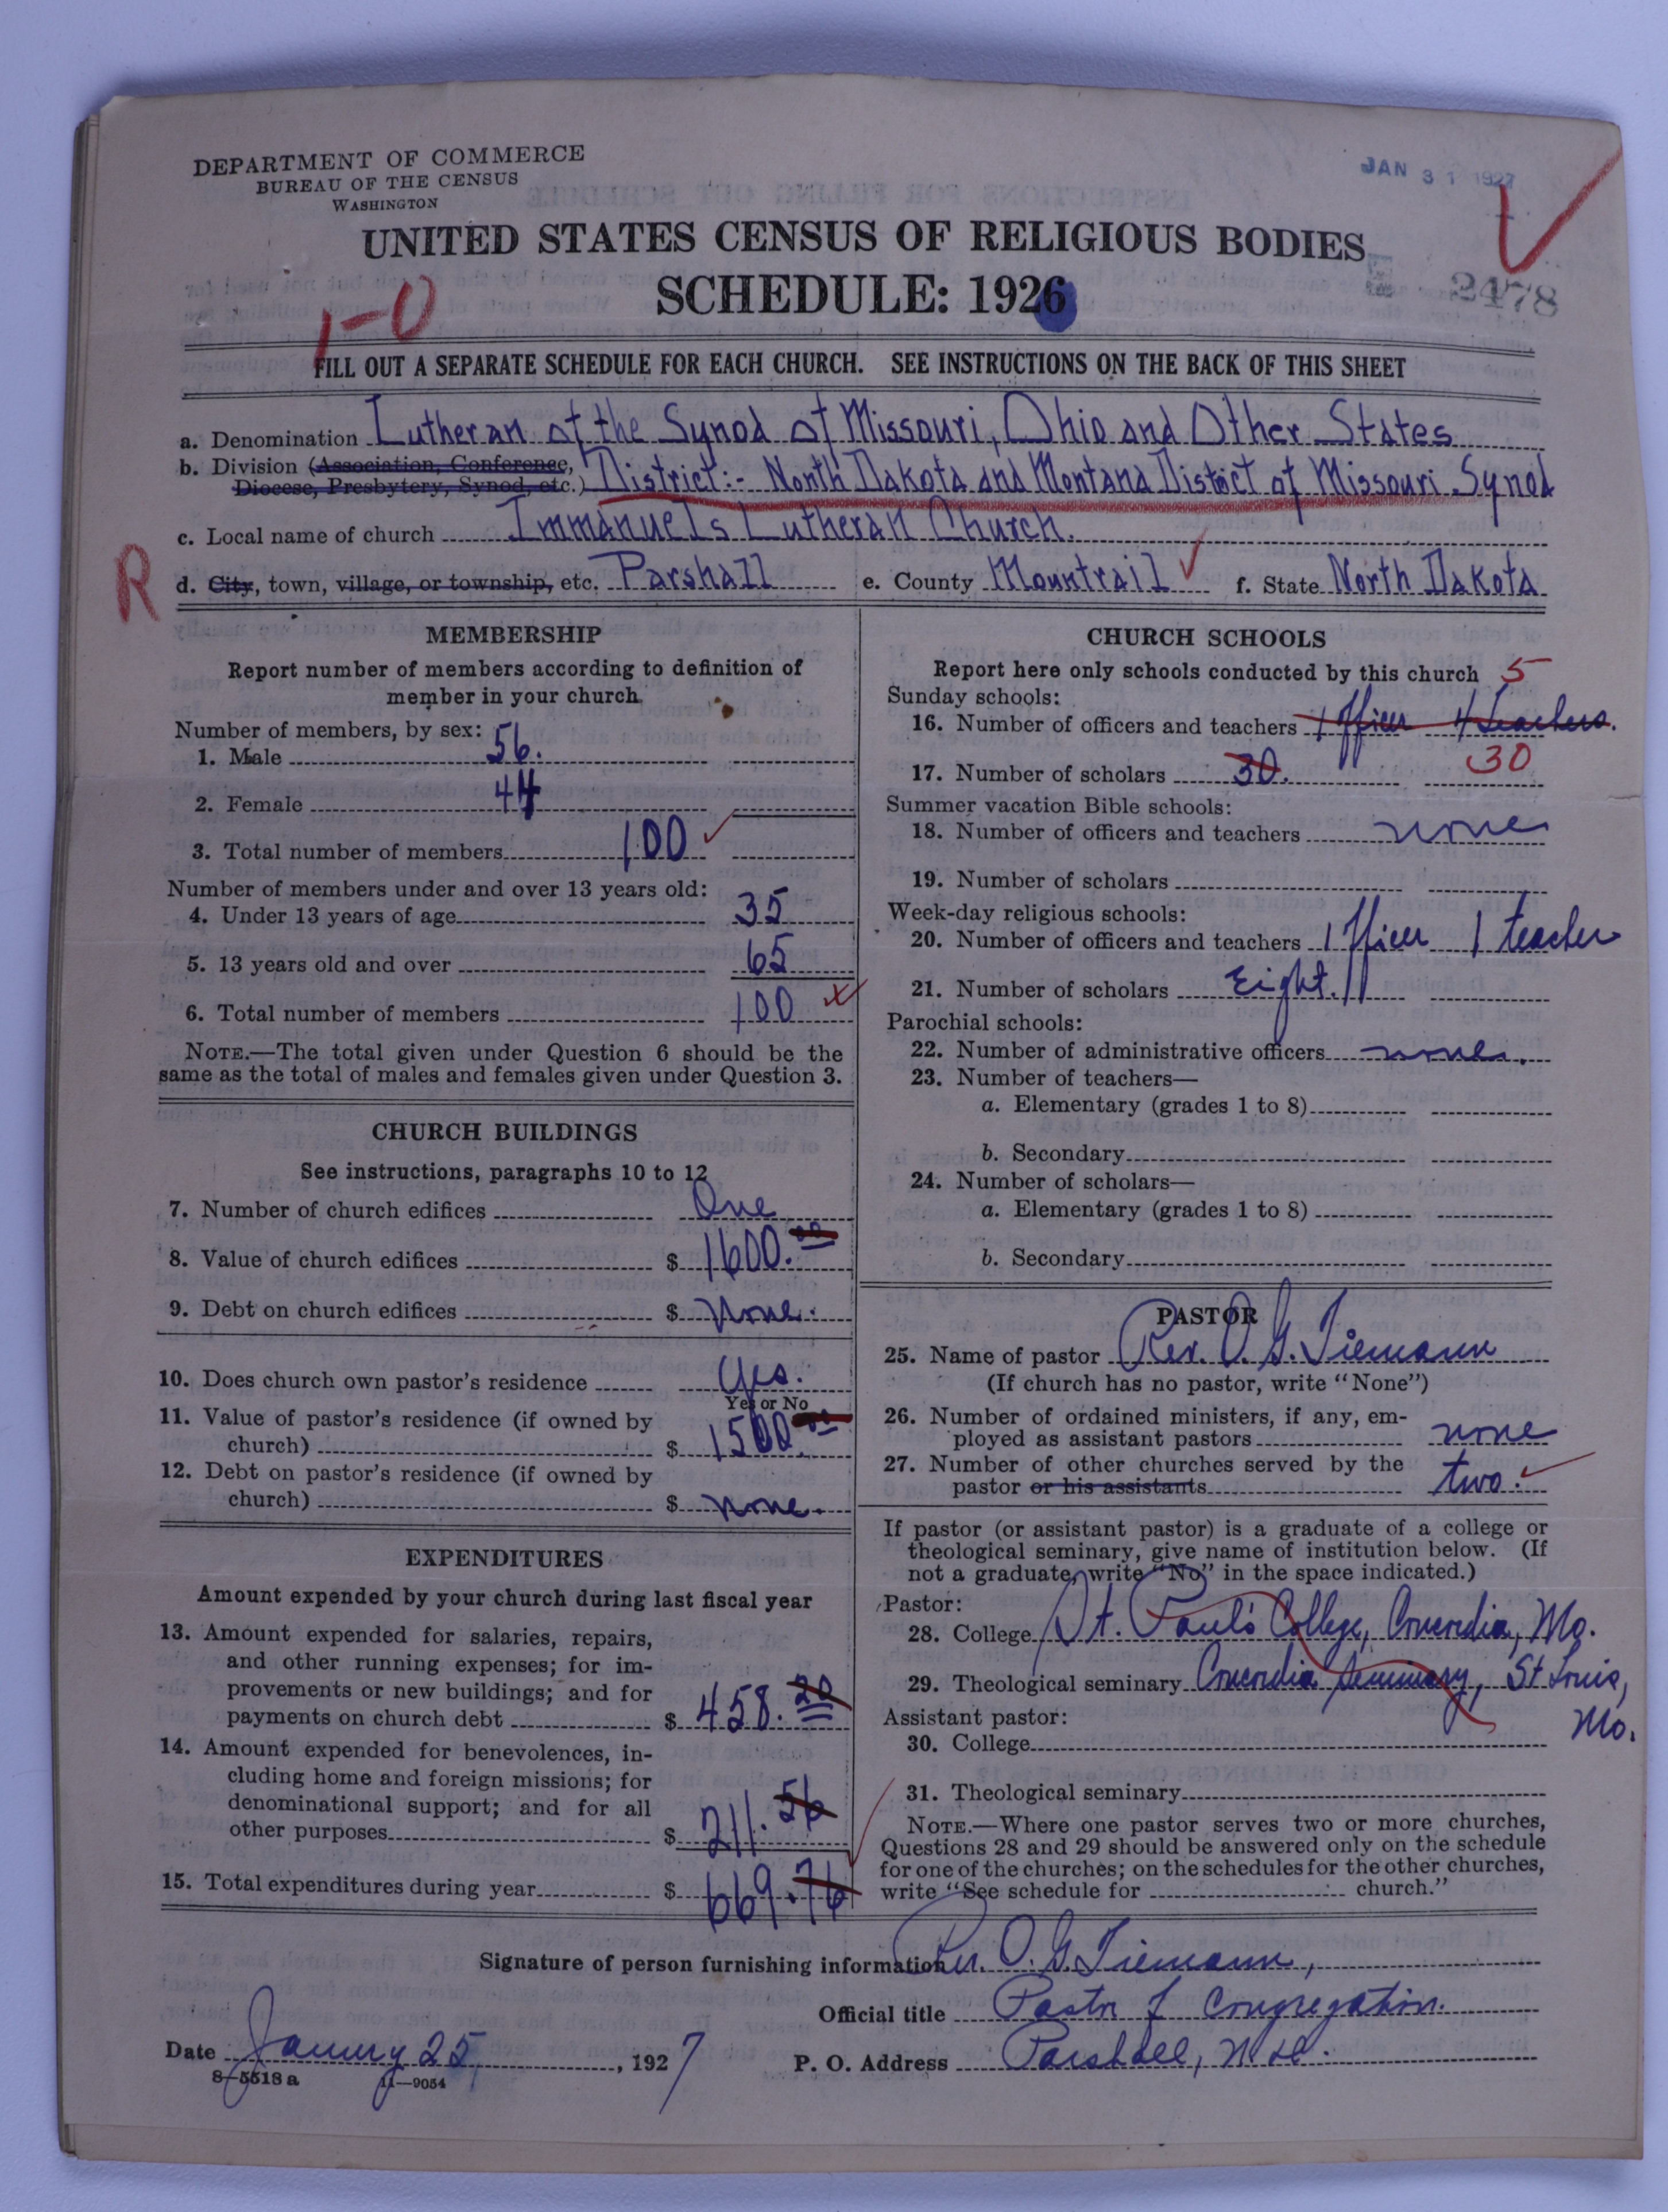 DEPARTMENT OF COMMERCE
BUREAU OF THE CENSUS
WASHINGTON
JAN 31 1927
UNITED STATES CENSUS OF RELIGIOUS BODIES
SCHEDULE: 1926
2478
1-0
FILL OUT A SEPARATE SCHEDULE FOR EACH CHURCH. SEE INSTRUCTIONS ON THE BACK OF THIS SHEET
a. Denomination Lutheran of the Synod of Missouri, Ohio and Other States
b. Division (Association, Conference, Diocese, Presbytery, Synod, etc.) District:- North Dakota and Montana District of Missouri Synod
c. Local name of church Immanuels Lutheran Church.
R
d. City, town, village, or township, etc. Parshall e. County Mountrail f. State North Dakota
MEMBERSHIP
Report number of members according to definition of
member in your church
Number of members, by sex:
1. Male 56.
2. Female 44
3. Total number of members 100
Number of members under and over 13 years old:
4. Under 13 years of age 35
5. 13 years old and over 65
6. Total number of members 100
NOTE.—The total given under Question 6 should be the
same as the total of males and females given under Question 3.
CHURCH BUILDINGS
See instructions, paragraphs 10 to 12
7. Number of church edifices One
8. Value of church edifices $ 1600.00
9. Debt on church edifices $ None.
10. Does church own pastor's residence Yes.
Yes or No
11. Value of pastor's residence (if owned by
church) $ 1500.00
12. Debt on pastor's residence (if owned by
church) $ none.
EXPENDITURES
Amount expended by your church during last fiscal year
13. Amount expended for salaries, repairs,
and other running expenses; for im-
provements or new buildings; and for
payments on church debt $ 458.20
14. Amount expended for benevolences, in-
cluding home and foreign missions; for
denominational support; and for all
other purposes $ 211.56
15. Total expenditures during year $ 669.76
CHURCH SCHOOLS
Report here only schools conducted by this church 5
Sunday schools:
16. Number of officers and teachers 1 officer 4 teachers.
17. Number of scholars 30. 30
Summer vacation Bible schools:
18. Number of officers and teachers none
19. Number of scholars
Week-day religious schools:
20. Number of officers and teachers 1 officer 1 teacher
21. Number of scholars Eight.
Parochial schools:
22. Number of administrative officers none.
23. Number of teachers—
a. Elementary (grades 1 to 8)
b. Secondary
24. Number of scholars—
a. Elementary (grades 1 to 8)
b. Secondary
PASTOR
25. Name of pastor Rev. O. G. Tiemann
(If church has no pastor, write "None")
26. Number of ordained ministers, if any, em-
ployed as assistant pastors none
27. Number of other churches served by the
pastor or his assistants two.
If pastor (or assistant pastor) is a graduate of a college or
theological seminary, give name of institution below. (If
not a graduate, write "No" in the space indicated.)
Pastor:
28. College St. Paul's College, Concordia, Mo.
29. Theological seminary Concordia Seminary, St Louis,
Mo.
Assistant pastor:
30. College
31. Theological seminary
NOTE.—Where one pastor serves two or more churches,
Questions 28 and 29 should be answered only on the schedule
for one of the churches; on the schedules for the other churches,
write "See schedule for church."
Signature of person furnishing information Rev. O. G. Tiemann,
Official title Pastor of Congregation.
Date January 25, 1927 P. O. Address Parshall, N. D.
8-5518 a 11—9054